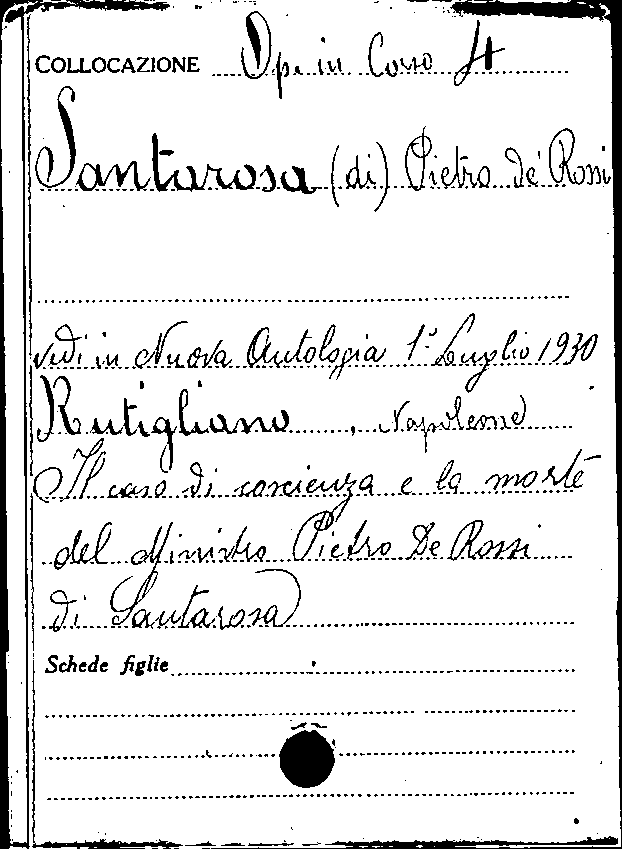 COLLOCAZIONE Op. in Corso 4
Santarosa (di) Pietro de' Rossi
vedi in Nuova Antologia 1° Luglio 1930
Rutigliano, Napoleone
Il caso di coscienza e la morte
del Ministro Pietro De Rossi
di Santarosa
Schede figlie